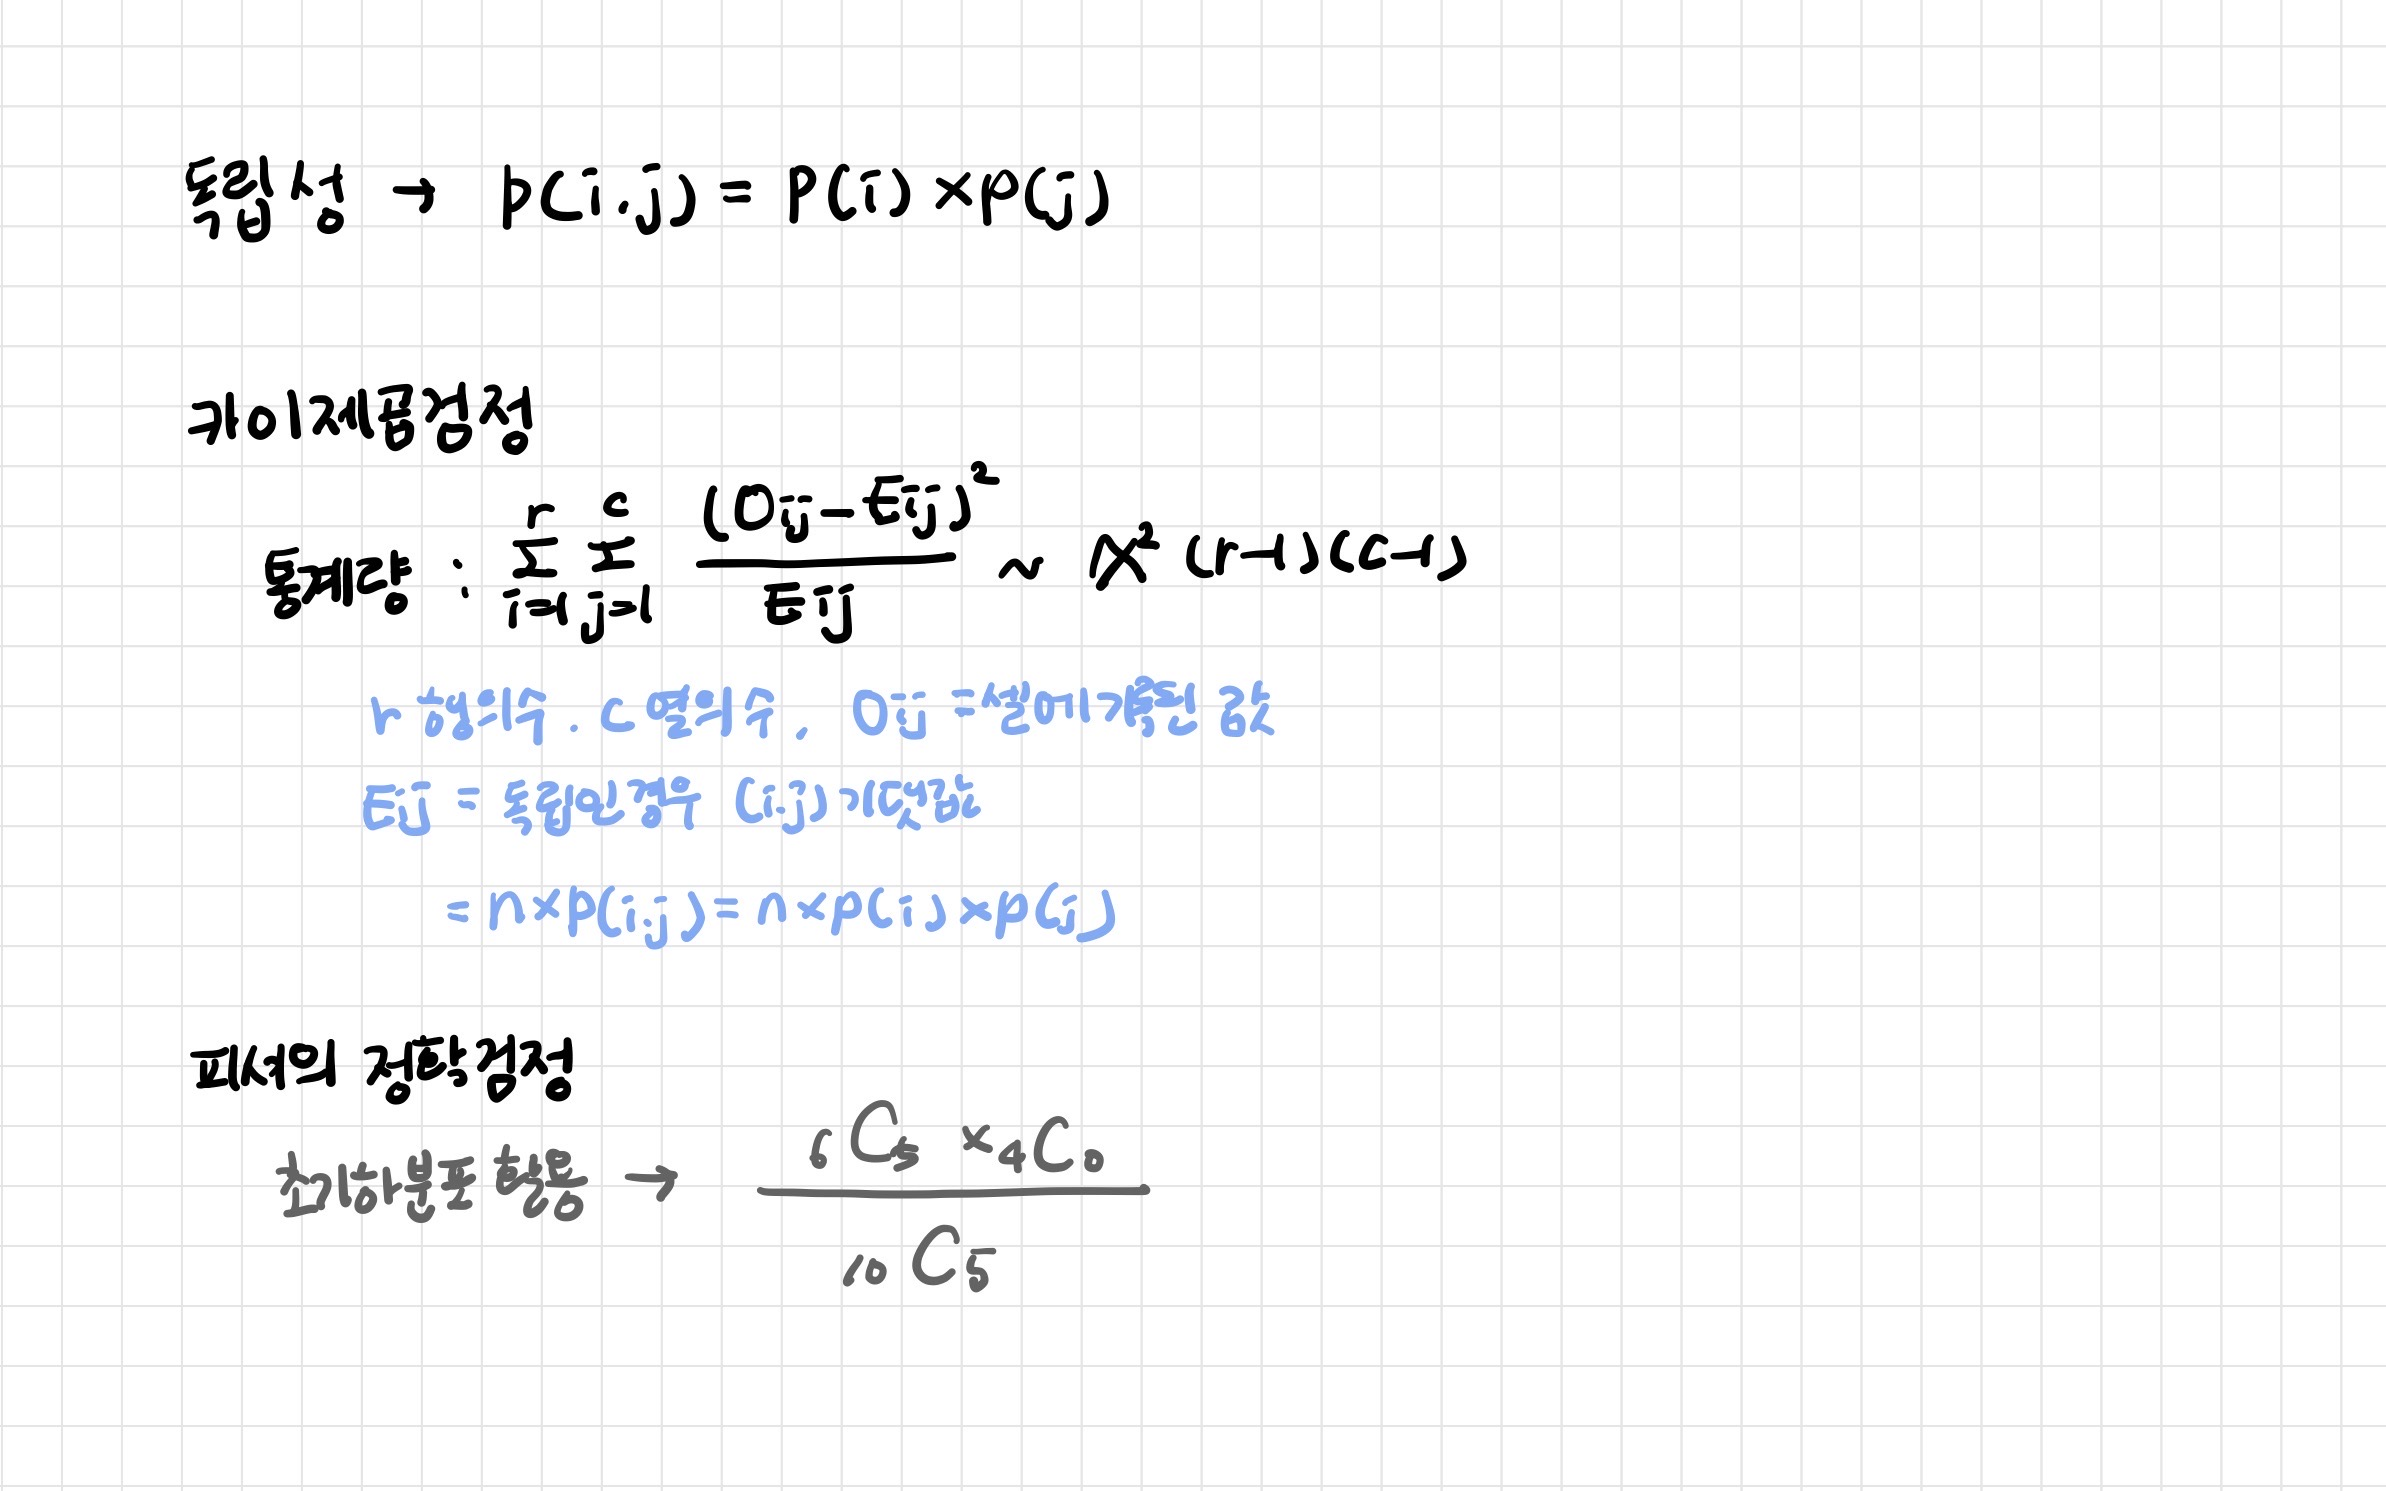 독립성 → p(i,j) = p(i) × p(j)
카이제곱검정
통계량 : $\sum_{i=1}^{r} \sum_{j=1}^{c} \frac{(O_{ij} - E_{ij})^2}{E_{ij}}$ ~ χ² (r-1)(c-1)
r 행의 수, c 열의 수, Oij = 셀에 관측된 값
Eij = 독립인 경우 (i,j)
= n×p(i,j) = n×p(i)×p(j)
피셔의 정확검정
초기하분포 활용 → $\frac{{}_{6}C_{5} \times {}_{4}C_{0}}{{}_{10}C_{5}}$